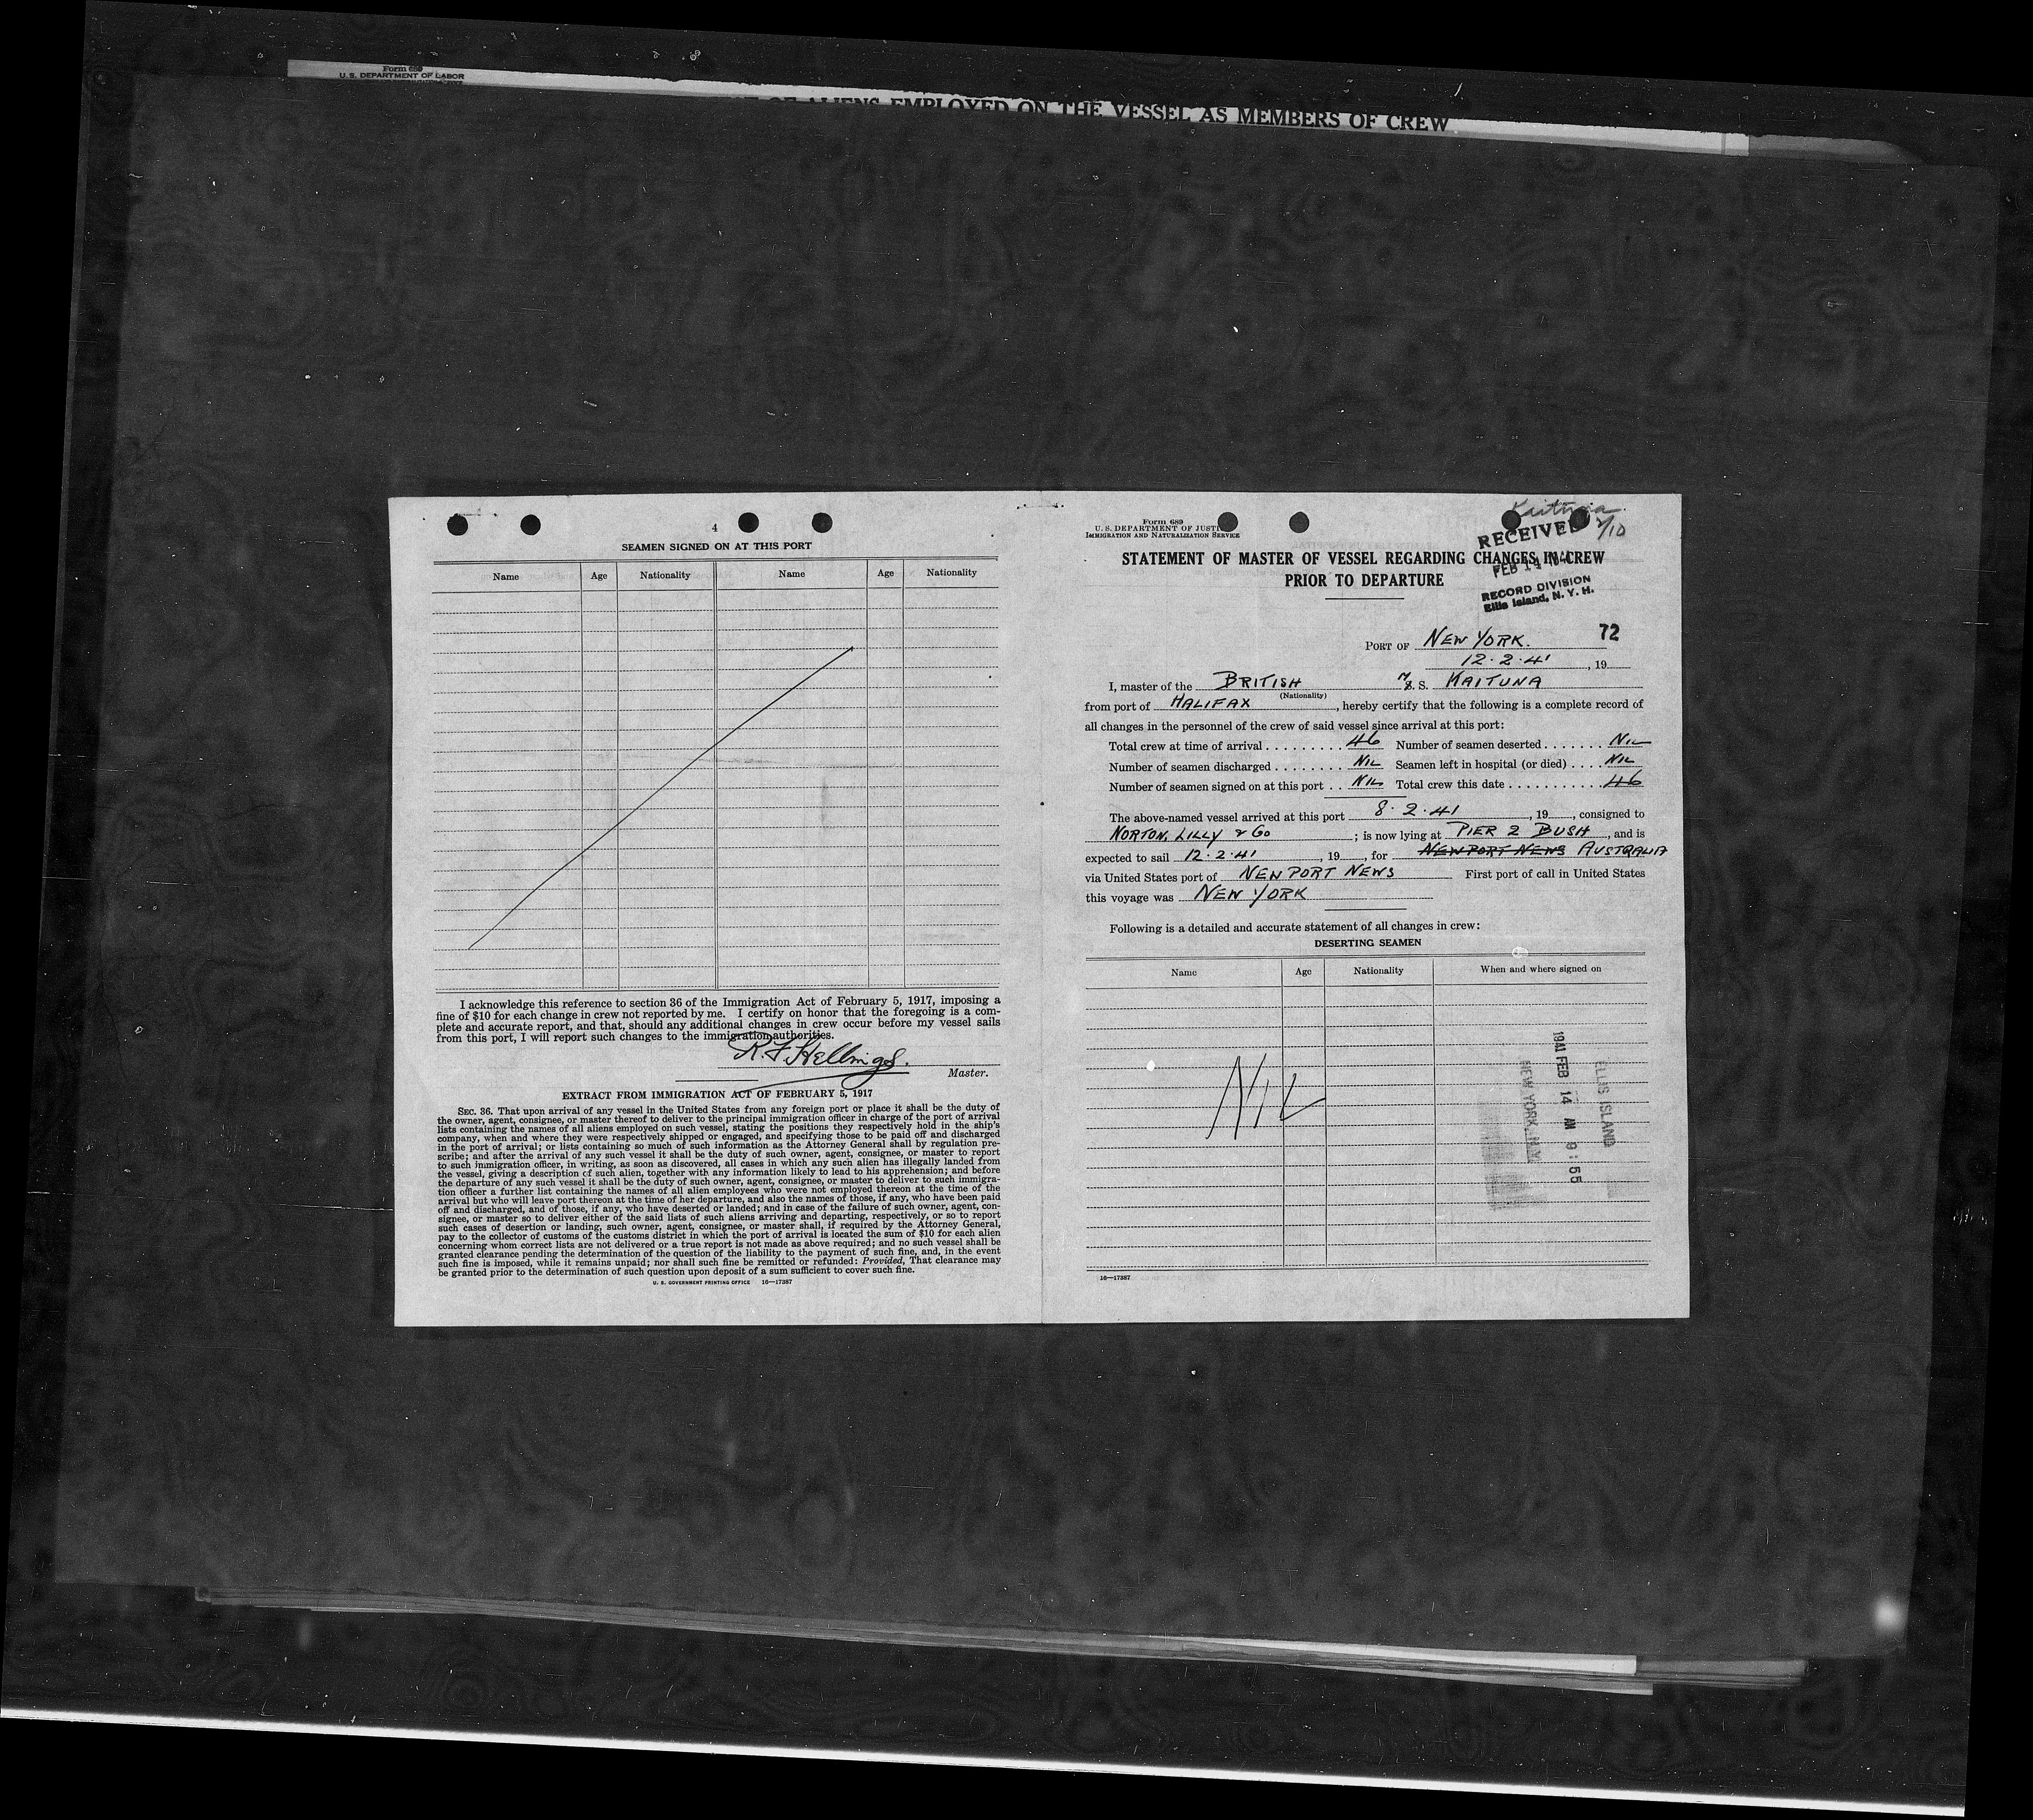 Form 689
U. S. DEPARTMENT OF LABOR
OF ALIENS EMPLOYED ON THE VESSEL AS MEMBERS OF CREW
4
SEAMEN SIGNED ON AT THIS PORT
Name Age Nationality Name Age Nationality
I acknowledge this reference to section 36 of the Immigration Act of February 5, 1917, imposing a
fine of $10 for each change in crew not reported by me. I certify on honor that the foregoing is a com-
plete and accurate report, and that, should any additional changes in crew occur before my vessel sails
from this port, I will report such changes to the immigration authorities.
R. F. Hellings.
Master.
EXTRACT FROM IMMIGRATION ACT OF FEBRUARY 5, 1917
SEC. 36. That upon arrival of any vessel in the United States from any foreign port or place it shall be the duty of
the owner, agent, consignee, or master thereof to deliver to the principal immigration officer in charge of the port of arrival
lists containing the names of all aliens employed on such vessel, stating the positions they respectively hold in the ship's
company, when and where they were respectively shipped or engaged, and specifying those to be paid off and discharged
in the port of arrival; or lists containing so much of such information as the Attorney General shall by regulation pre-
scribe; and after the arrival of any such vessel it shall be the duty of such owner, agent, consignee, or master to report
to such immigration officer, in writing, as soon as discovered, all cases in which any such alien has illegally landed from
the vessel, giving a description of such alien, together with any information likely to lead to his apprehension; and before
the departure of any such vessel it shall be the duty of such owner, agent, consignee, or master to deliver to such immigra-
tion officer a further list containing the names of all alien employees who were not employed thereon at the time of the
arrival but who will leave port thereon at the time of her departure, and also the names of those, if any, who have been paid
off and discharged, and of those, if any, who have deserted or landed; and in case of the failure of such owner, agent, con-
signee, or master so to deliver either of the said lists of such aliens arriving and departing, respectively, or so to report
such cases of desertion or landing, such owner, agent, consignee, or master shall, if required by the Attorney General,
pay to the collector of customs of the customs district in which the port of arrival is located the sum of $10 for each alien
concerning whom correct lists are not delivered or a true report is not made as above required; and no such vessel shall be
granted clearance pending the determination of the question of the liability to the payment of such fine, and, in the event
such fine is imposed, while it remains unpaid; nor shall such fine be remitted or refunded: Provided, That clearance may
be granted prior to the determination of such question upon deposit of a sum sufficient to cover such fine.
U. S. GOVERNMENT PRINTING OFFICE 16—17387
Kaituna.
2/10
Form 689
U. S. DEPARTMENT OF JUSTICE
IMMIGRATION AND NATURALIZATION SERVICE
RECEIVED
FEB 14 1941
RECORD DIVISION
Ellis Island, N. Y. H.
STATEMENT OF MASTER OF VESSEL REGARDING CHANGES IN CREW
PRIOR TO DEPARTURE
72
PORT OF NEW YORK.
12.2.41, 19
I, master of the BRITISH M. S. KAITUNA
(Nationality)
from port of HALIFAX, hereby certify that the following is a complete record of
all changes in the personnel of the crew of said vessel since arrival at this port:
Total crew at time of arrival . . . . . . . . . 46 Number of seamen deserted . . . . . . . NIL
Number of seamen discharged . . . . . . . . NIL Seamen left in hospital (or died) . . . . NIL
Number of seamen signed on at this port . . NIL Total crew this date . . . . . . . . . . . 46
The above-named vessel arrived at this port 8.2.41, 19, consigned to
NORTON, LILLY & Co; is now lying at PIER 2 BUSH, and is
expected to sail 12.2.41, 19, for NEWPORT NEWS AUSTRALIA
via United States port of NEWPORT NEWS First port of call in United States
this voyage was NEW YORK
Following is a detailed and accurate statement of all changes in crew:
DESERTING SEAMEN
Name Age Nationality When and where signed on
NIL
ELLIS ISLAND
1941 FEB 14 AM 9:55
NEW YORK, N.Y.
16—17387